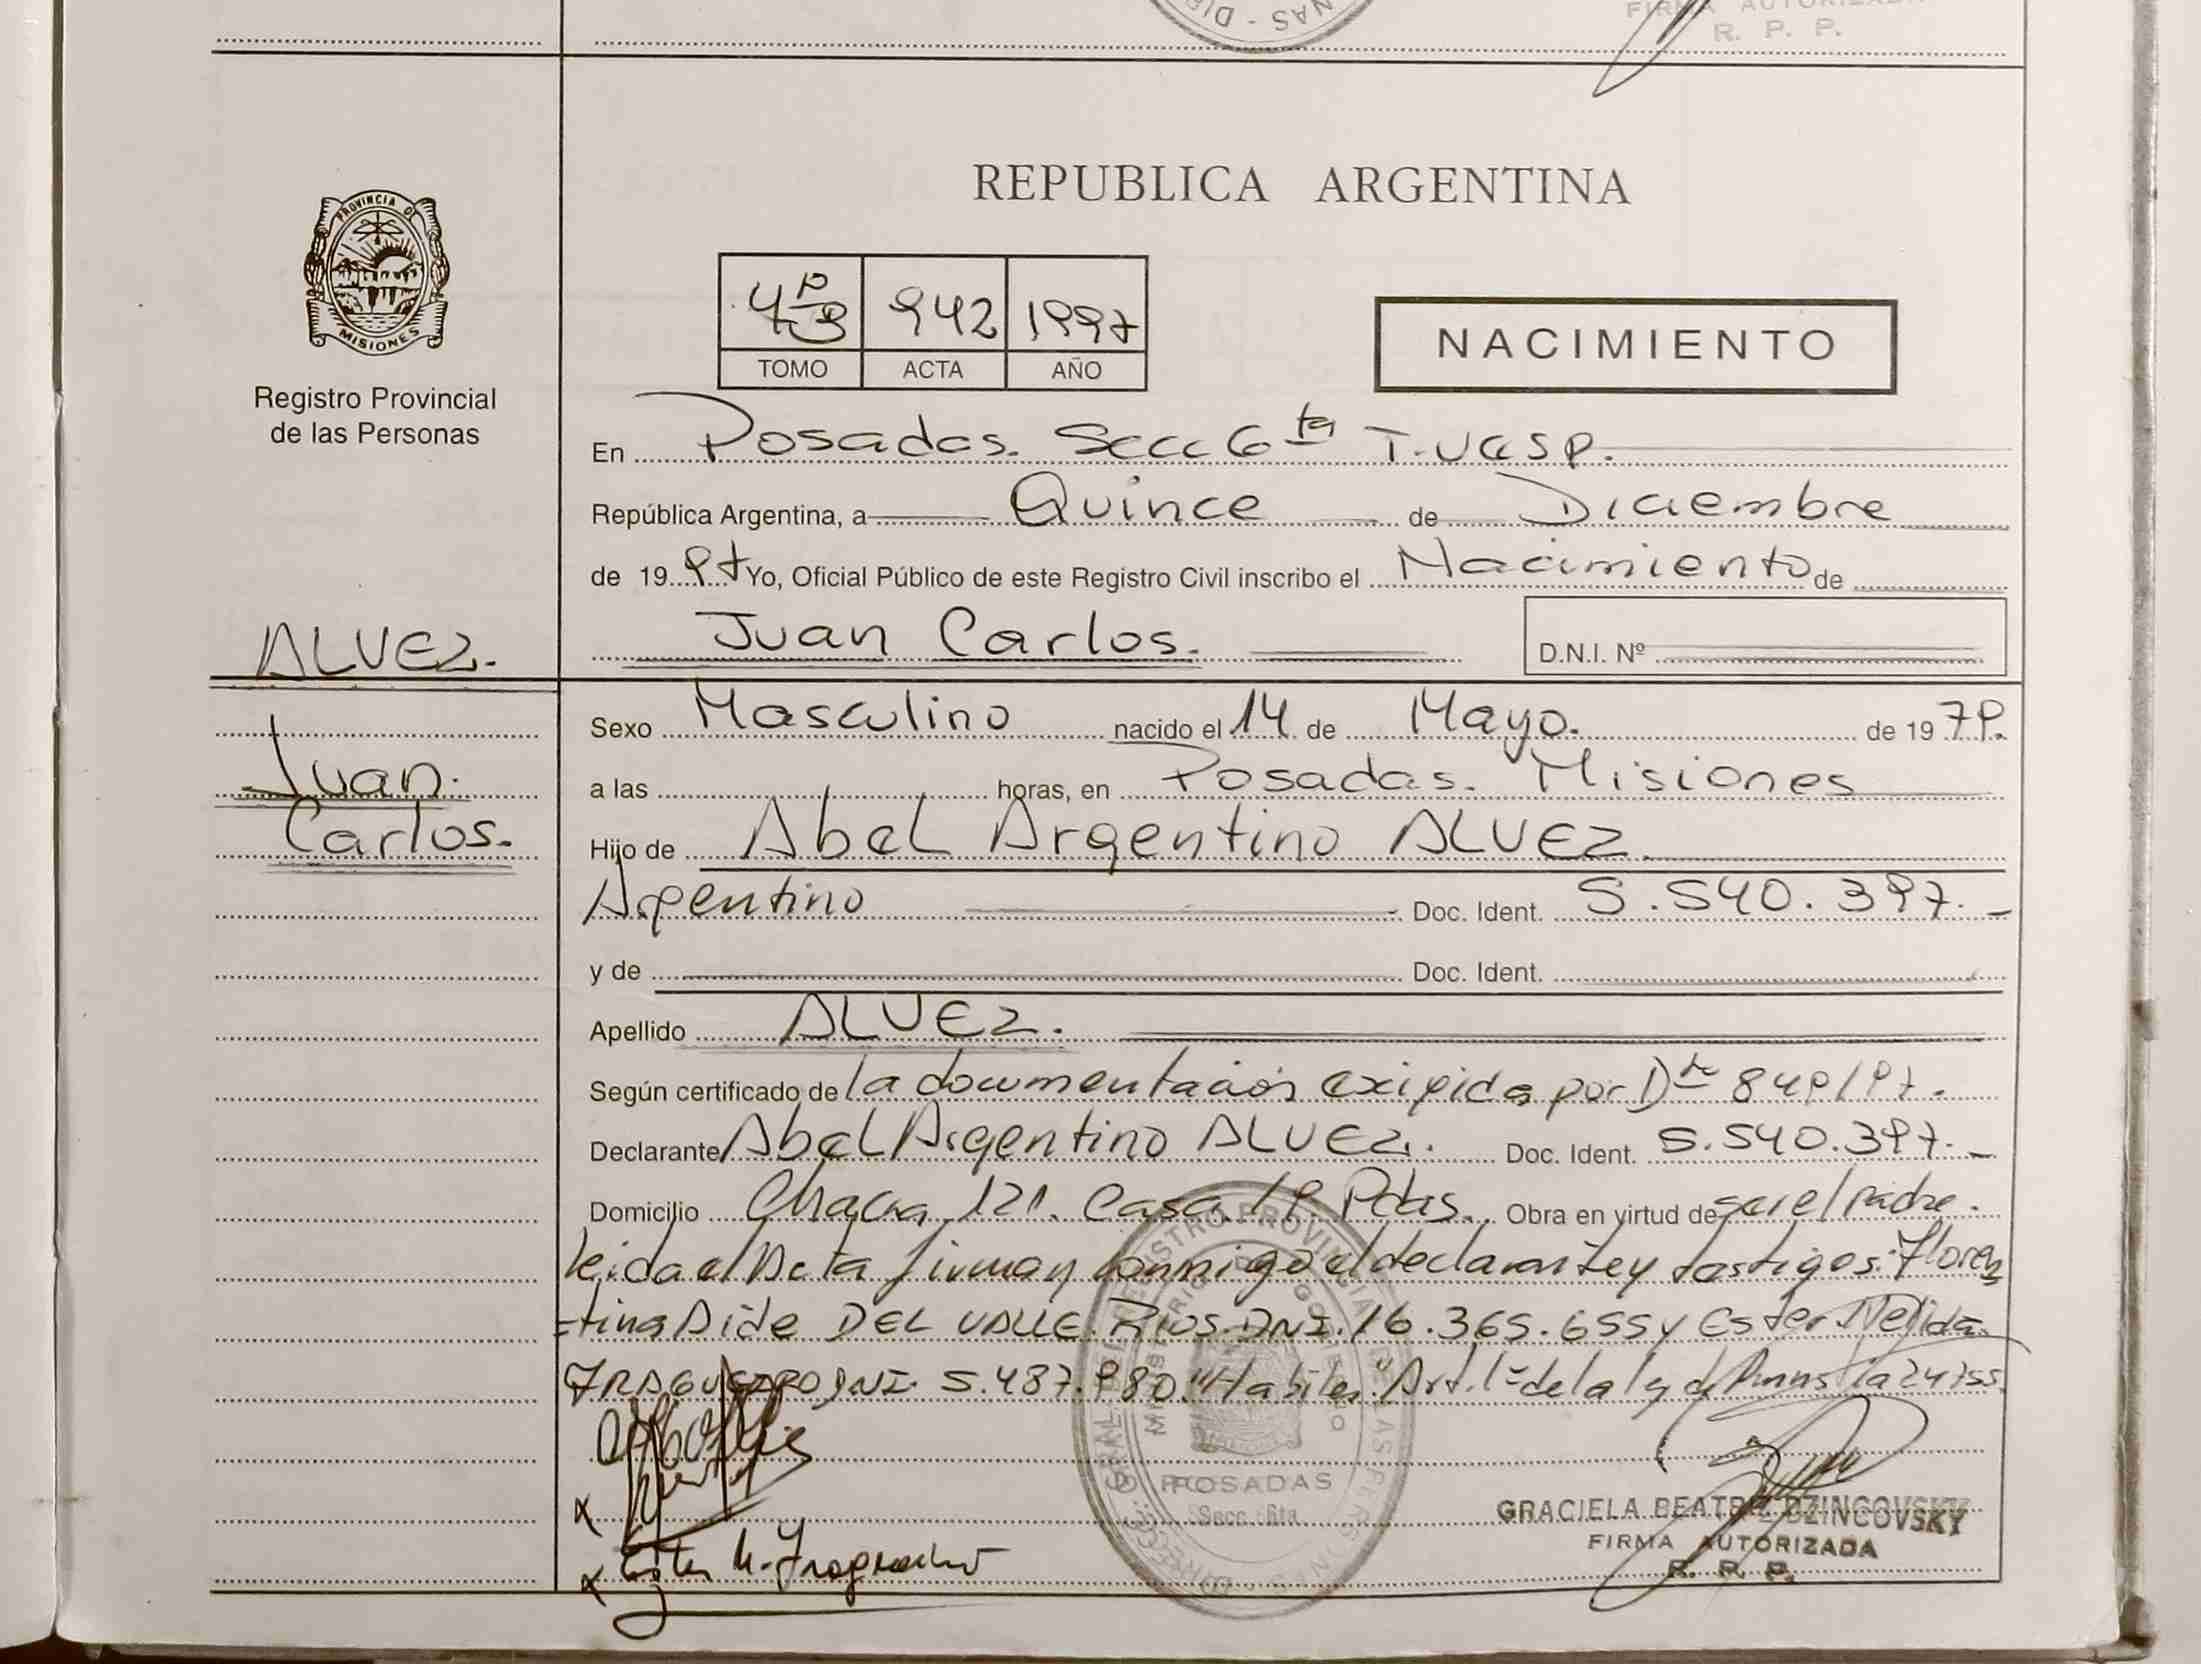 FIRMA AUTORIZADA
R. P. P.
PROVINCIA DE
MISIONES
Registro Provincial
de las Personas
REPUBLICA ARGENTINA
942 1997
TOMO ACTA AÑO
NACIMIENTO
En Posadas. Secc 6ta
República Argentina, a Quince de Diciembre
de 1997 Yo, Oficial Público de este Registro Civil inscribo el Nacimiento de
ALVEZ. Juan Carlos. D.N.I. Nº
Sexo Masculino nacido el 14 de Mayo. de 1979.
Juan a las horas, en Posadas. Misiones
Carlos. Hijo de Abel Argentino ALVEZ
Argentino Doc. Ident. 5.540.397.
y de Doc. Ident.
Apellido ALVEZ.
Según certificado de la documentación exigida por Dto 849/97.
Declarante Abel Argentino ALVEZ. Doc. Ident. 5.540.397.
Domicilio Chacra 121. Casa 19. Pdas. Obra en virtud de ser el padre.
leida el Acta firman conmigo el declarante y testigos: Floren
=tina Aide DEL VALLE Rios. DNI. 16.365.655 y Ester Nelida
DNI 5.487.980. "Habiles". Art. 1º de la ley de Amnistia 24755
POSADAS
Secc. 6ta.
GRACIELA BEATRIZ DZINCOVSKY
FIRMA AUTORIZADA
R. P. P.